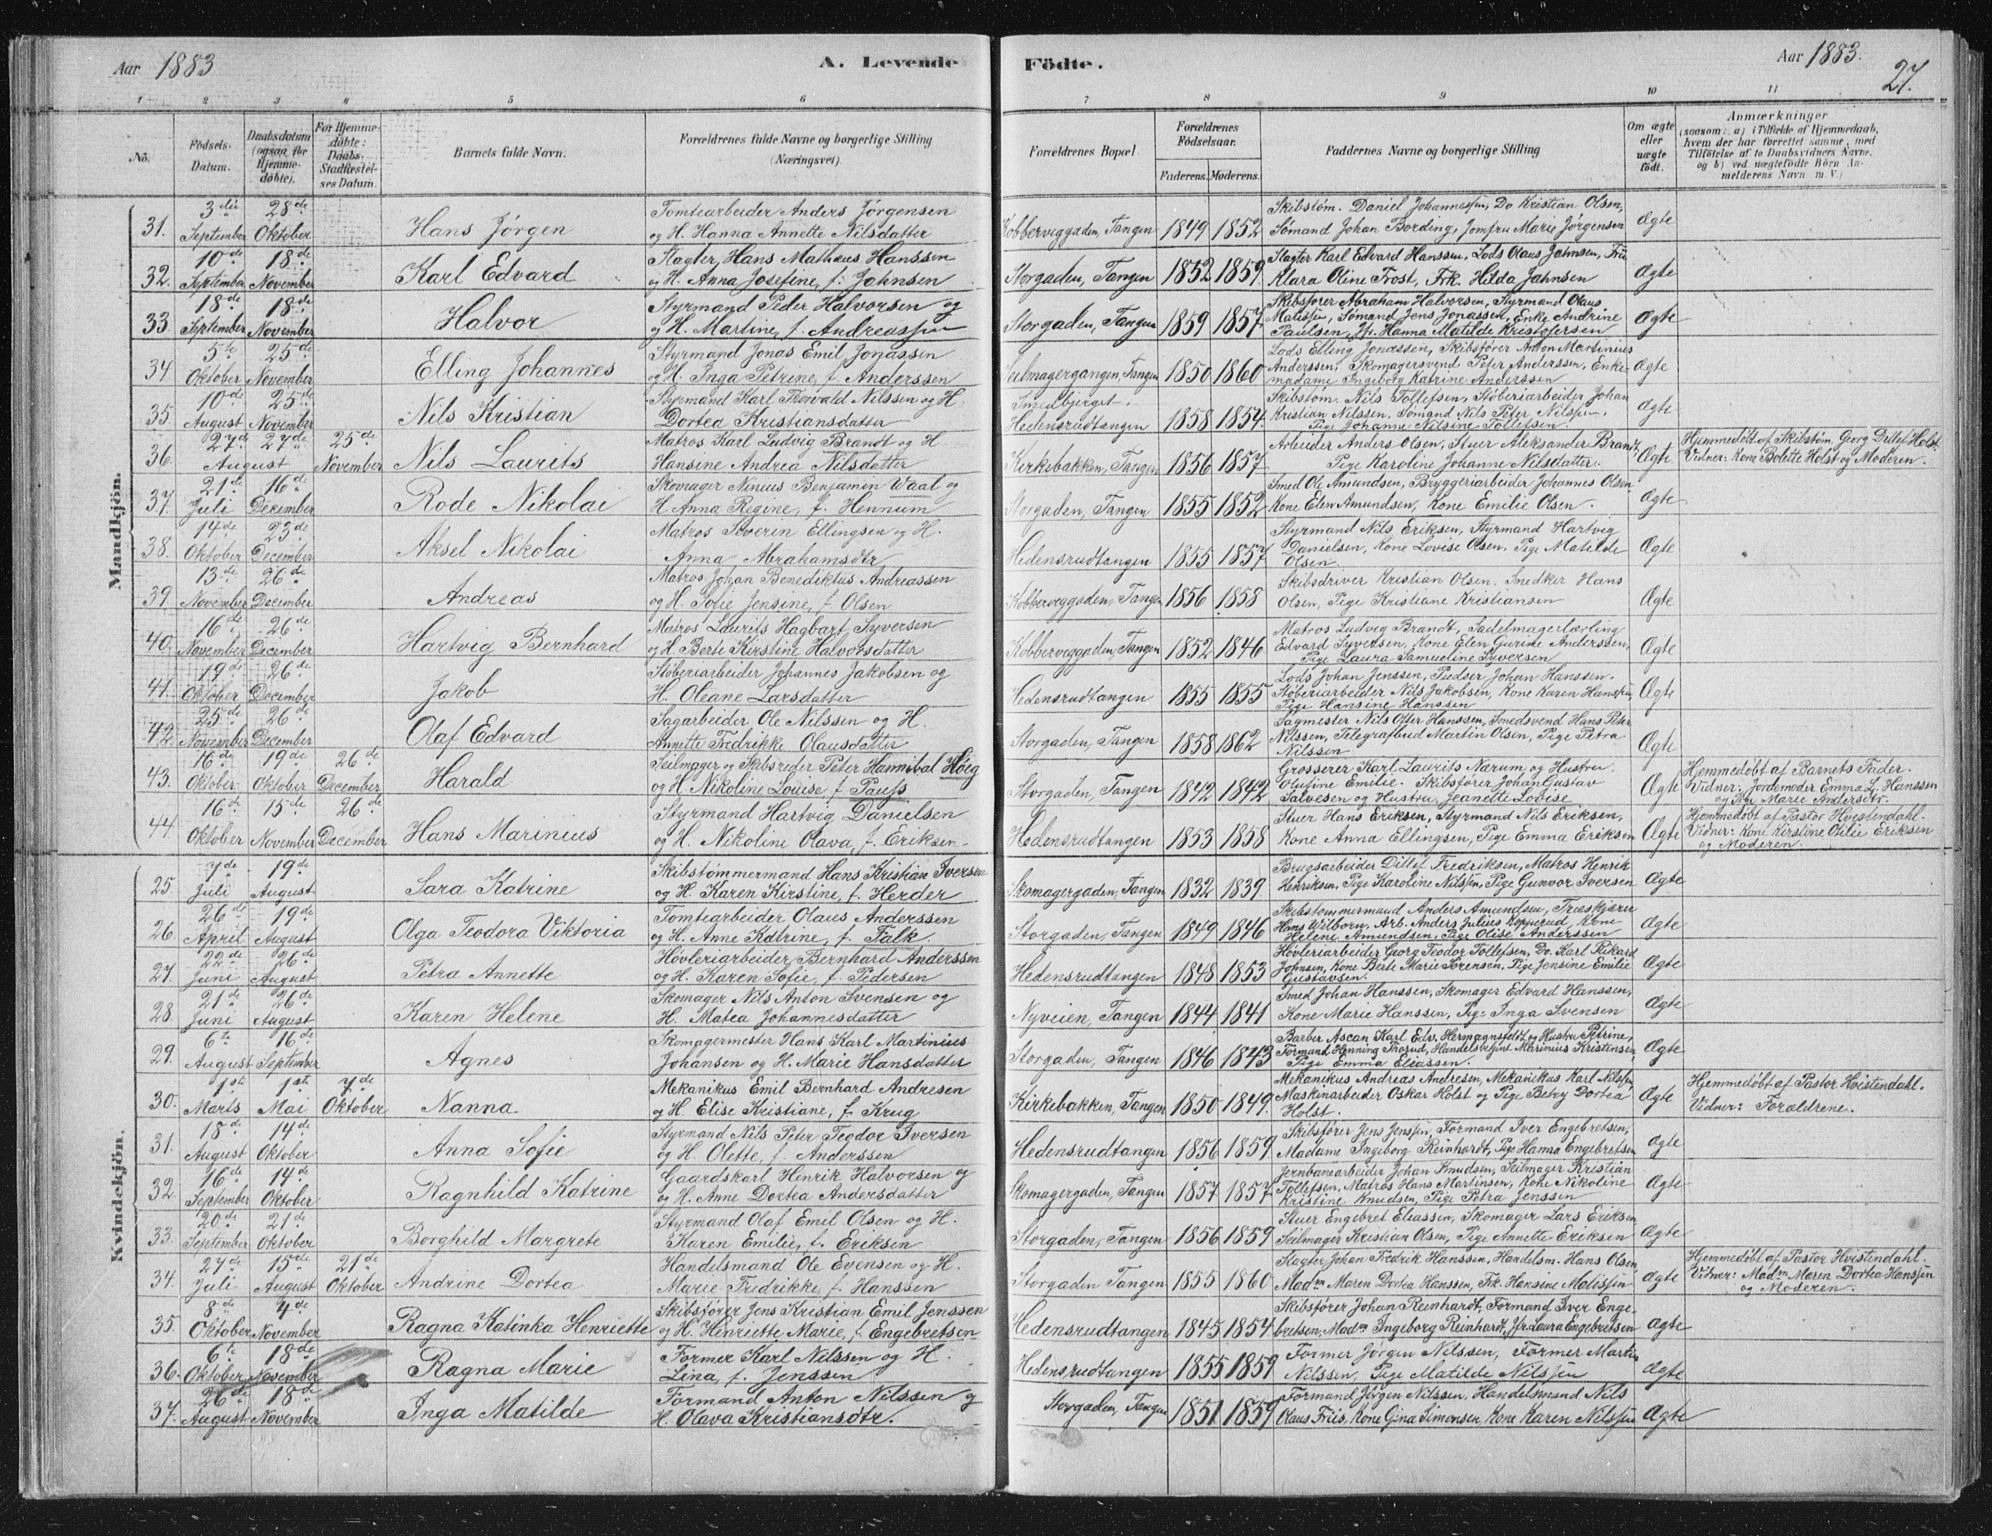 Aar 1883 A. Levende Födte. Aar 1883. 27.
1 2 3 4 5 6 7 8 9 10 11
No. Födsels-Datum. Daabsdatum (ogsaa for Hjemmedöbte). For Hjemmedöbte: Daabs-Stadfæstelses Datum. Barnets fulde Navn. Forældrenes fulde Navne og borgerlige Stilling (Næringsvei). Forældrenes Bopæl Forældrenes Födselsaar. Faderens. Moderens. Faddernes Navne og borgerlige Stilling Om ægte eller uægte födt. Anmærkninger (saasom: a) i Tilfælde af Hjemmedaab, hvem der har forrettet samme, med Tilföielse af to Daabsvidners Navne, og b) ved uægtefödte Börn Anmelderens Navn m. V.)
Mandkjön.
31. 3die September 28de Oktober Hans Jörgen Tomtearbeider Anders Jörgensen og H. Hanna Annette Nilsdatter Kobberveggaden, Tangen 1849 1852 Skibstöm. Daniel Johannessen, Do Kristian Olsen, Sömand Johan Bording, Jomfru Marie Jörgensen Ægte
32. 10de September 18de November Karl Edvard Slagter, Hans Matheus Hanssen og H. Anna Josefine, f. Jahnsen Storgaden, Tangen 1852 1859 Slagter Karl Edvard Hanssen, Lods Olaus Jahnsen, Fru Klara Oline Frost, Frk. Hilda Jahnsen Ægte
33. 18de September 18de November Halvor Styrmand Peder Halvorsen og og H. Martine, f. Andreassen Storgaden, Tangen 1859 1857 Skibsförer Abraham Halvorsen, Styrmand Olaus Matissen, Sömand Jens Jonassen, Enke Andrine Paulsen, Jfr. Hanna Matilde Kristofersen Ægte
34 5te Oktober 25de November Elling Johannes Styrmand Jonas Emil Jonassen og H. Inga Petrine, f. Anderssen Seilmagergangen, Tangen 1850 1860 Lods Elling Jonassen, Skibsförer Anton Martinius Anderssen, Skomagersvend Peter Anderssen, Enkemadame Ingeborg Katrine Anderssen Ægte
35. 10de August 25de November Nils Kristian Styrmand Karl Torvald Nilssen og H. Dortea Kristiansdatter Smedbjerget. Hedensrudtangen 1858 1854. Skibstöm. Nils Tollefsen, Stöberiarbeider Johan Kristian Nilssen, Sömand Nils Peter Nilssen. Pige Johanne Nilsine Tollefsen Ægte
36. 27de August 27de 25de November Nils Laurits Matros Karl Ludvig Brandt og H Hansine Andrea Nilsdatter Kirkebakken, Tangen 1856 1857. Arbeider Anders Olsen, Stuer Aleksander Brandt, Pige Karoline Johanne Nilsdatter. Ægte Hjemmedöbt af Skibstöm. Georg Ditlef Holst. Vidner: Kone Bolette Holst og Moderen.
37. 21de Juli 16de December Rode Nikolai Skomager Ninius Benjamin Vaal og H. Anna Regine, f. Hennum Storgaden, Tangen 1855 1852 Smed Ole Amundsen, Bryggeriarbeider Johannes Olsen Kone Elen Amundsen, Kone Emilie Olsen. Ægte
38. 14de Oktober 23de December Aksel Nikolai Matros Severin Ellingsen og H. Anna Abrahamsdtr Hedensrudtangen 1855 1857 Styrmand Nils Eriksen, Styrmand Hartvig Danielsen, Kone Lovise Olsen. Pige Matilde Olsen. Ægte
39. 13de November 26de December Andreas Matros Johan Benediktus Andreassen og H. Sofie Jensine, f. Olsen Kobberveggaden, Tangen 1856 1858 Skibsdriver Kristian Olsen. Snedker Hans Olsen, Pige Kristiane Kristiansen Ægte
40. 16de November 26de December Hartvig Bernhard Matros Laurits Hagbart Syversen og H Berte Kirstine Halvorsdatter Kobberveggaden, Tangen 1852 1846 Matros Ludvig Brandt, Sadelmagerlærling Edvard Syversen, Kone Elen Gurine Anderssen, Pige Laura Samueline Syversen Ægte
41. 19de Oktober 26de December Jakob Stöberiarbeider Johannes Jakobsen og H. Oleane Larsdatter Hedensrudtangen 1855 1855 Lods Johan Jenssen, Pudser Johan Hanssen. Stöberiarbeider Nils Jakobsen, Kone Karen Hanssen, Pige Hansine Hanssen Ægte
42. 25de November 26de December Olaf Edvard Sagarbeider Ole Nilssen og H. Annette Fredrikke Olausdatter Storgaden, Tangen 1858 1862 Sagmester Nils Otter Hanssen, Smedsvend Hans Peter Nilssen, Telegrafbud Martin Olsen, Pige Petra Nilssen Ægte
43. 16de Oktober 19de Oktober 26de December Harald Seilmager og Skibsreder Peter Hannibal Höeg og H. Nikoline Louise, f. Pauss Storgaden, Tangen 1842 1842 Grosserer Karl Laurits Narum og Hustru Olufine Emilie. Skibsförer Johan Gustav Salvesen og Hustru Jeanette Lovise Ægte Hjemmedöbt af Barnets Fader. Vidner: Jordemoder Emma L. Hanssen og Pige Marie Andersdtr.
44. 16de Oktober 15de November 26de December Hans Marinius Styrmand Hartvig Danielsen og H. Nikoline Olava, f. Eriksen Hedensrudtangen 1853 1858 Stuer Hans Eriksen, Styrmand Nils Eriksen, Kone Anna Ellingsen, Pige Emma Eriksen Ægte Hjemmedöbt af Pastor Hvistendahl. Vidner: Kone Kirstine Otilie Eriksen og Moderen.
Kvindekjön.
25. 7de Juli 19de August Sara Katrine Skibstömmermand Hans Kristian Iversen og H. Karen Kirstine, f. Herder Skomagergaden, Tangen 1832 1839 Brugsarbeider Ditlef Fredriksen, Matros Henrik Henriksen, Pige Karoline Nilssen, Pige Gunvor Iversen Ægte
26 26de April 19de August Olga Teodora Viktoria Tomtearbeider Olaus Anderssen og H. Anne Katrine, f. Falk. Storgaden, Tangen 1849 1846 Skibstömmermand Anders Amundsen, Træskjærer Hans Wilborn, Arb. Anders Julius Kopperud, Kone Helene Amundsen, Pige Olise Anderssen Ægte
27. 22de Juni 26de August Petra Annette Hövleriarbeider Bernhard Anderssen og H. Karen Sofie, f. Pedersen Hedensrudtangen 1848 1853 Hövleriarbeider Georg Teodor Tollefsen, Do. Karl Rikard Johnsen, Kone Berte Marie Sörensen, Pige Jensine Emilie Gustavsen. Ægte
28 21de Juni 26de August Karen Helene Skomager Nils Anton Svensen og H. Matea Johannesdatter Nyveien, Tangen 1844 1841 Smed Johan Hanssen, Skomager Edvard Hanssen, Kone Marie Hanssen, Pige Inga Svensen Ægte
29. 6te August 16de September Agnes Skomagermester Hans Karl Martinius Johansen og H. Marie Hansdatter Storgaden, Tangen 1846 1843 Barber Ascan Karl Edv. Hermagnsfeldt og Hustru Petrine, Formand Henning Thorud, Handelsbetjent Marinius Kristensen Pige Emma Eliassen. Ægte
30. 1ste Marts 1ste Mai 7de Oktober Nanna Mekanikus Emil Bernhard Andresen og H. Elise Kristiane, f. Krug Kirkebakken, Tangen 1850 1849. Mekanikus Andreas Andresen, Mekanikus Karl Nilssen Maskinarbeider Oskar Holst og Pige Betzy Dortea Holst. Ægte Hjemmedöbt af Pastor Hvistendahl. Vidner: Forældrene.
31. 18de August 14de Oktober Anna Sofie Styrmand Nils Peter Teodor Iversen og H. Olette, f. Anderssen Hedensrudtangen 1856 1859. Skibsförer Jens Jenssen, Formand Iver Engebretsen, Madame Ingeborg Reinhardt, Pige Hanna Engebretsen Ægte
32. 16de September 14de Oktober Ragnhild Katrine Gaardskarl Henrik Halvorsen og og H. Anne Dortea Andersdatter Skomagergaden, Tangen 1857 1857 Jernbanearbeider Johan Knudsen, Seilmager Kristian Tollefsen, Matros Hans Martinsen, Kone Nikoline Kristine Knudsen, Pige Petra Jenssen Ægte
33. 20de September 21de Oktober Borghild Margrete Styrmand Olaf Emil Olsen og H. Karen Emilie, f. Eriksen Storgaden, Tangen 1856 1859 Stuer Engebret Eliassen, Skomager Lars Eriksen Seilmager Kristian Olsen, Pige Annette Eriksen Ægte
34. 27de Juli 15de August 21de Oktober Andrine Dortea Handelsmand Ole Evensen og H. Marie Fredrikke, f. Hanssen Storgaden Tangen 1855 1860 Slagter Johan Fredrik Hanssen, Handelsm. Hans Olsen, Madm Maren Dortea Hanssen, Frk. Hansine Matissen Ægte Hjemmedöbt af Pastor Hvistendahl. Vidner: Madm Maren Dortea Hanssen og Moderen.
35. 8de Oktober 4de November Ragna Katinka Henriette Skibsförer Jens Kristian Emil Jenssen og H. Henriette Marie, f. Engebretsen Hedensrudtangen 1845 1854 Skibsförer Johan Reinhardt, Formand Iver Engebretsen, Madm Ingeborg Reinhardt, Jfr Laura Engebretsen Ægte
36. 6te Oktober 18de November Ragna Marie Former Karl Nilssen og H. Lina, f. Jenssen Hedensrudtangen 1855 1859 Former Jörgen Nilssen, Former Martin Nilssen, Pige Matilde Nilssen Ægte
37. 26de August 18de November Inga Matilde Formand Anton Nilssen og H. Olava Kristiansdtr. Storgaden, Tangen 1851 1859 Formand Jörgen Nilssen, Handelsmand Nils Olaus Friis, Kone Gina Simonsen, Kone Karen Nilssen Ægte